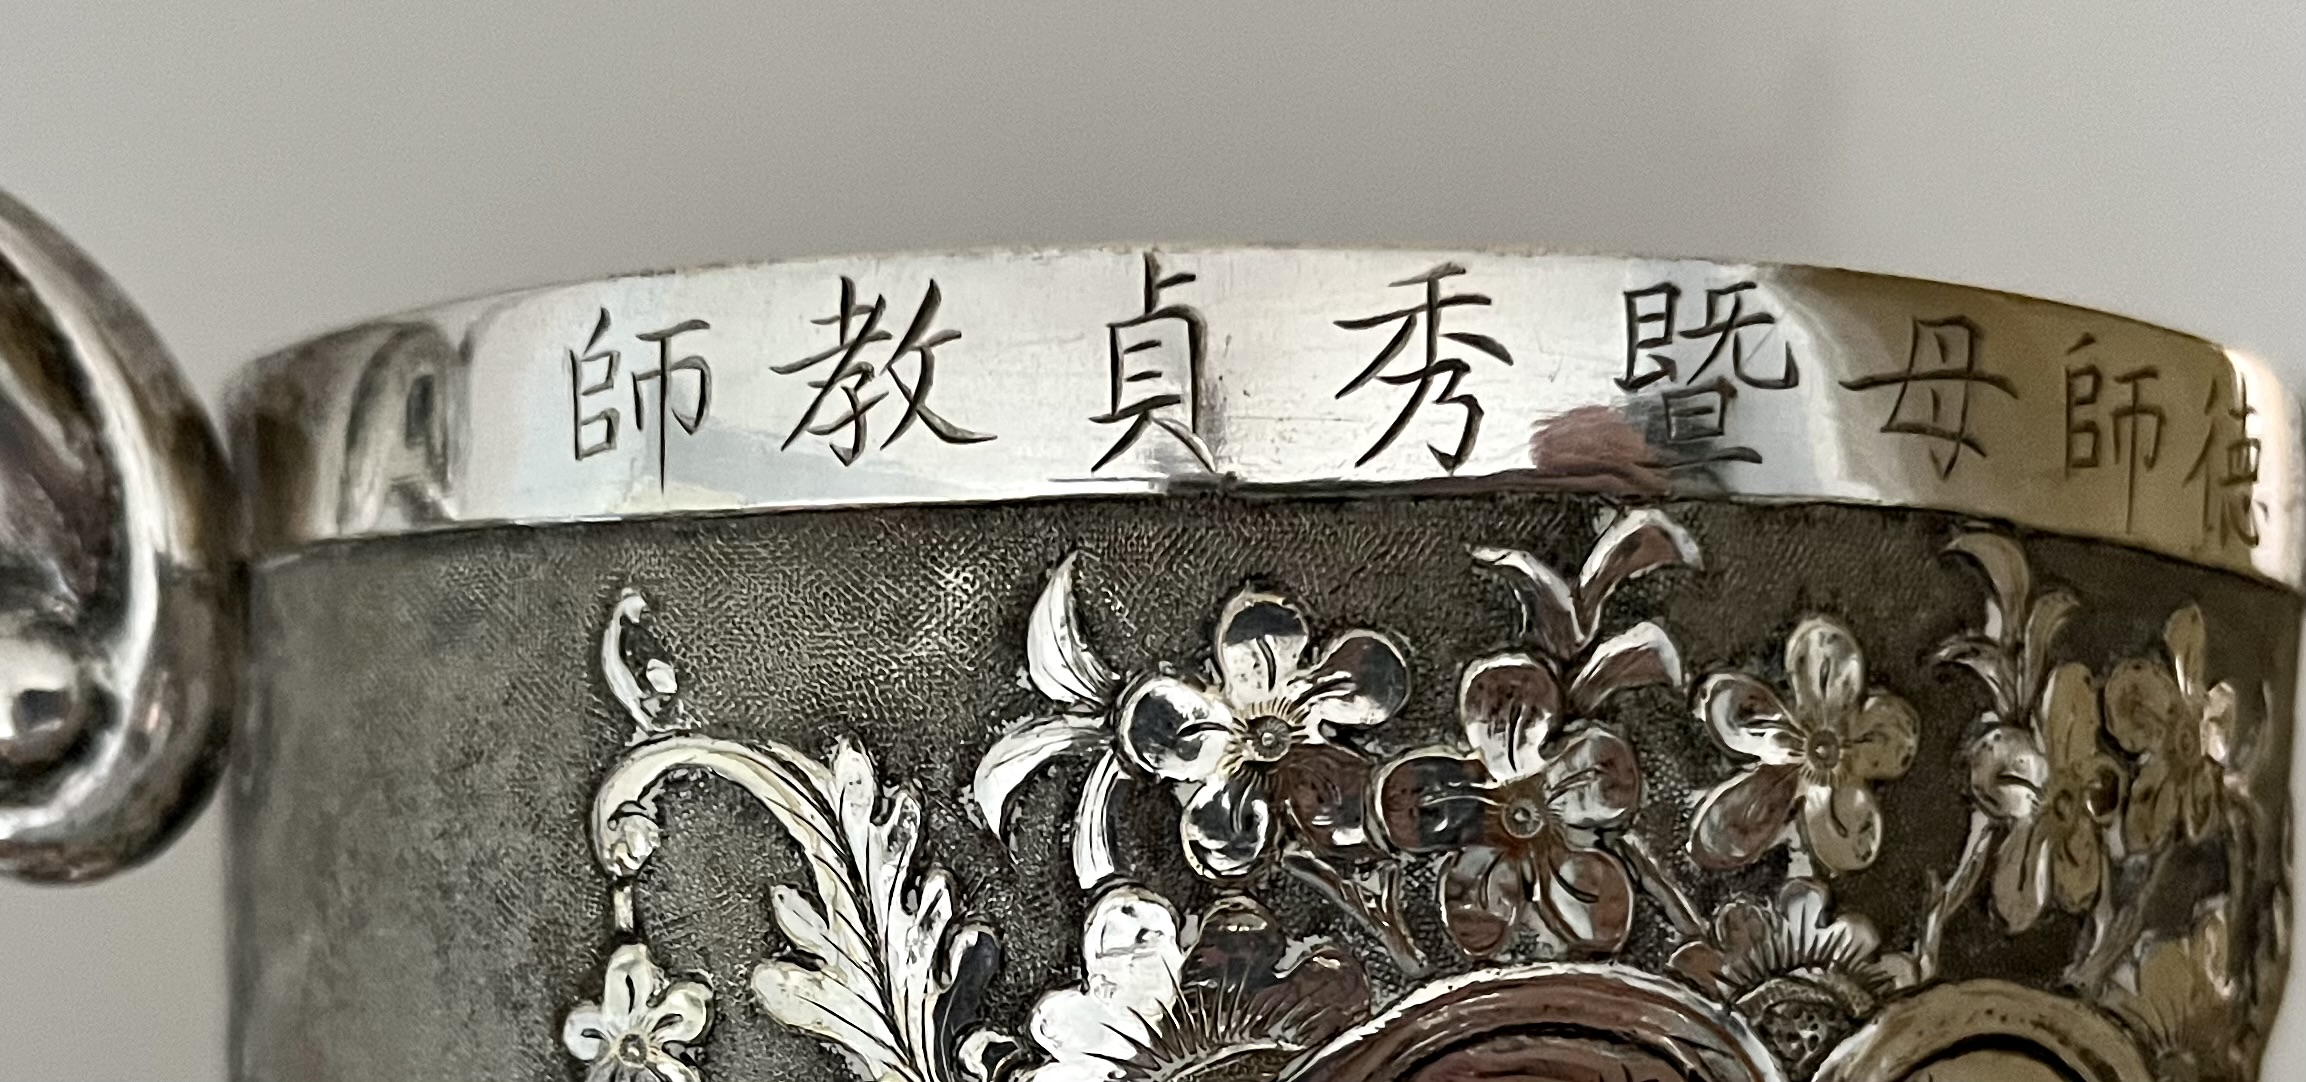 師教貞秀暨母師德